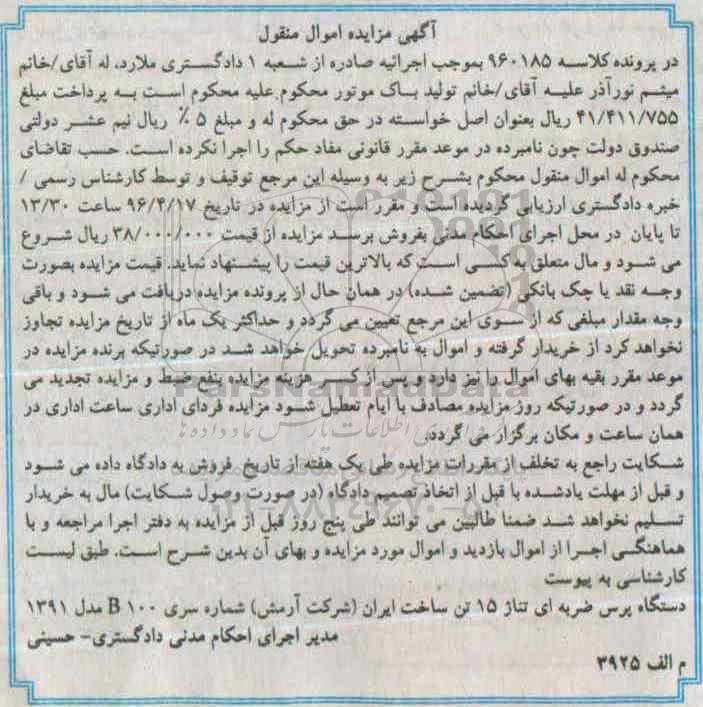 آگهی مزایده اموال منقول
در پرونده کلاسه ۹۶۰۱۸۵ بموجب اجرائیه صادره از شعبه ۱ دادگستری ملارد، له آقای/خانم
میثم نورآذر علیه آقای/خانم تولید باک موتور محکوم علیه محکوم است به پرداخت مبلغ
۴۱/۴۱۱/۷۵۵ ریال بعنوان اصل خواسته در حق محکوم له و مبلغ ۵ ٪ ریال نیم عشر دولتی
صندوق دولت چون نامبرده در موعد مقرر قانونی مفاد حکم را اجرا نکرده است. حسب تقاضای
محکوم له اموال منقول محکوم بشرح زیر به وسیله این مرجع توقیف و توسط کارشناس رسمی /
خبره دادگستری ارزیابی گردیده است و مقرر است از مزایده در تاریخ ۹۶/۴/۱۷ ساعت ۱۳/۳۰
تا پایان در محل اجرای احکام مدنی بفروش برسد مزایده از قیمت ۳۸/۰۰۰/۰۰۰ ریال شروع
می شود و مال متعلق به کسی است که بالاترین قیمت را پیشنهاد نماید. قیمت مزایده بصورت
وجه نقد یا چک بانکی (تضمین شده) در همان حال از پرونده مزایده دریافت می شود و باقی
وجه مقدار مبلغی که از سوی این مرجع تعیین می گردد و حداکثر یک ماه از تاریخ مزایده تجاوز
نخواهد کرد از خریدار گرفته و اموال به نامبرده تحویل خواهد شد در صورتیکه برنده مزایده در
موعد مقرر بقیه بهای اموال را نیز دارد و پس از کسر هزینه مزایده بنفع ضبط و مزایده تجدید می
گردد و در صورتیکه روز مزایده مصادف با ایام تعطیل شود مزایده فردای اداری ساعت اداری در
همان ساعت و مکان برگزار می گردد.
شکایت راجع به تخلف از مقررات مزایده طی یک هفته از تاریخ فروش به دادگاه داده می شود
و قبل از مهلت یادشده با قبل از اتخاذ تصمیم دادگاه (در صورت وصول شکایت) مال به خریدار
تسلیم نخواهد شد ضمنا طالبین می توانند طی پنج روز قبل از مزایده به دفتر اجرا مراجعه و با
هماهنگی اجرا از اموال بازدید و اموال مورد مزایده و بهای آن بدین شرح است. طبق لیست
کارشناسی به پیوست
دستگاه پرس ضربه ای تناژ ۱۵ تن ساخت ایران (شرکت آرمش) شماره سری B ۱۰۰ مدل ۱۳۹۱
مدیر اجرای احکام مدنی دادگستری- حسینی
م الف ۳۹۲۵
ParsNamadData